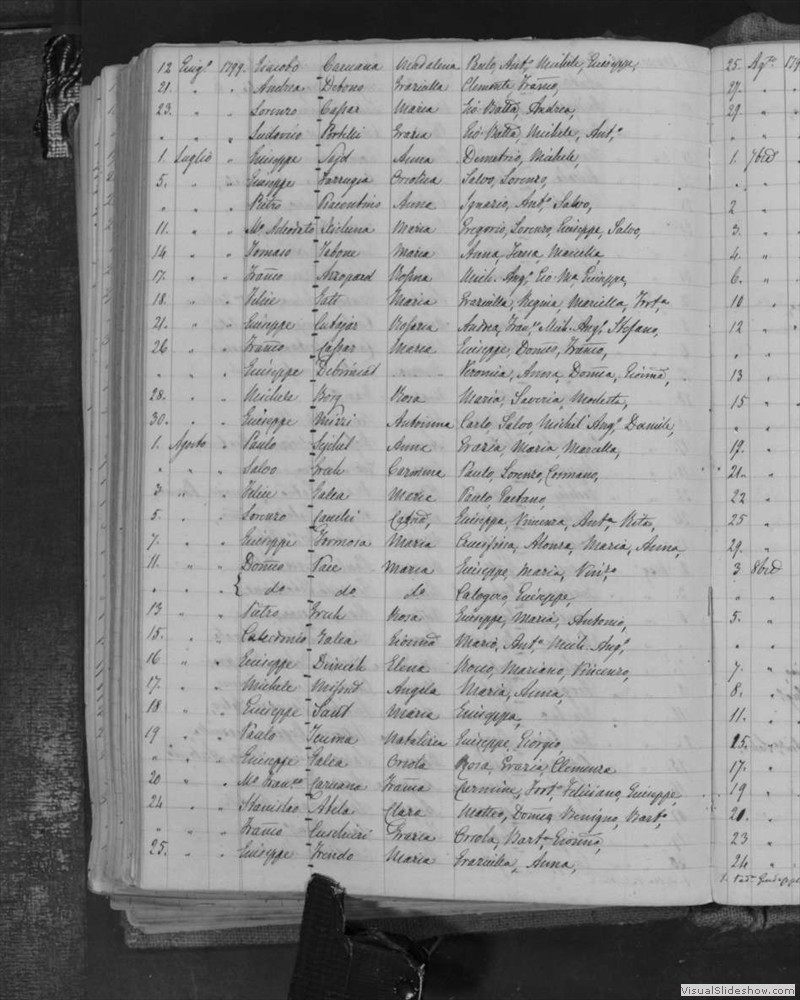 12 Giug.o 1799. Giacobo Caruana Madalena Paulo, Ant.o Michele, Giuseppe,
21. " " Andrea Debono Graziulla Clemente, Franco,
23. " " Lorenzo Caspar Maria Gio Batta, Andrea,
" " " Ludovico Portelli Grazia Gio Batta, Michele, Ant.o
1. Luglio " Giuseppe Sajd Anna Demetrio, Michele,
5. " " Giuseppe Farrugia Orsolica Salvo, Lorenzo,
" " " Pietro Piacentino Anna Ignazio, Ant.o Salvo,
11. " " M.o Adeodato Xicluna Maria Gregorio, Lorenzo, Giuseppe, Salvo,
14 " " Tomaso Tabone Maria Anna, Teresa, Mariella,
17. " " Franco Azzopard Rosina Mich. Ang.o Gio M.a Giuseppe,
18. " " Felice Gatt Maria Graziulla, Regina, Mariella, Fort.a
21. " " Giuseppe Cutajar Rosaria Andrea, Fran.co Mich. Ang.o Stefano,
26 " " Franco Caspar Maria Giuseppe, Dom.co, Franco,
" " " Giuseppe Veronica, Anna, Giovña,
28. " " Michele Borg Rosa Maria, Saveria, Modesta,
30. " " Giuseppe Mizzi Antonina Carlo, Salvo, Michel Ang.o Daniele,
1. Agosto " Paulo Sejchel Anna Grazia, Maria, Marcella,
" " " Salvo Grech Carmena Paulo, Lorenzo, Cosmano,
3 " " Felice Galea Maria Paulo, Gaetano,
5. " " Lorenzo Camilleri Catña Giuseppa, Vincenza, Ant.a Rita,
7. " " Giuseppe Formosa Maria Crucifissa, Alonza, Maria, Anna,
11. " " Dom.co Pace Maria Giuseppe, Maria, Vinc.o
" " " { do do do Calogero, Giuseppe,
13 " " Pietro Grech Rosa Giuseppe, Maria, Antonio,
15. " " Calcedonio Galea Giovña Mario, Ant.o Mich. Ang.o
16 " " Giuseppe Dimech Elena Rocco, Mariano, Vincenzo,
17. " " Michele Mifsud Angela Maria, Anna,
18 " " Giuseppe Sant Maria Giuseppa,
19 " " Paulo Teuma Natalizia Giuseppe, Giorgio,
" " " Giuseppe Galea Orsola Rosa, Grazia, Clemenza
20 " " M.o Fran.co Caruana Franca Carmine, Fort.o Feliciano, Giuseppe,
24 " " Stanislao Abela Clara Matteo, Benigno, Bart.o
" " " Franco Cuschieri Grazia Orsola, Bart.o Giovño,
25. " " Giuseppe Trendo Maria Graziulla, Anna,
25. Ag.to 179
27. "
29. "
" "
1. 7bre
" "
2 "
3. "
4. "
6. "
10 "
12 "
" "
13 "
15 "
" "
19. "
21. "
22 "
25 "
29. "
3 8bre
" "
5. "
" "
7. "
8. "
11. "
15. "
17. "
19 "
21. "
23 "
24 "
VisualSlideshow.com